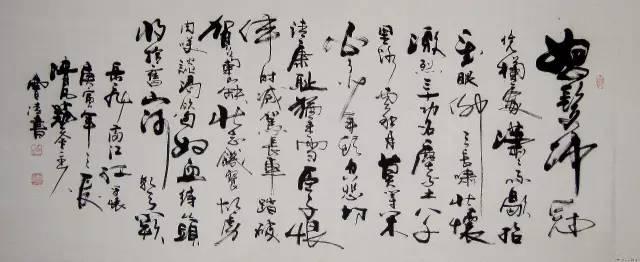 怒髮冲冠
凭欄處瀟瀟雨歇抬
望眼仰天長嘯壯懷
激烈三十功名塵與土八千
里路雲和月莫等閑
白了少年頭空悲切
靖康耻猶未雪臣子恨
何時滅駕長車踏破
賀蘭山缺壯志飢餐胡虜
肉笑談渴飲匈奴血待從頭
收拾舊山河朝天闕
岳飛滿江紅
庚寅年之